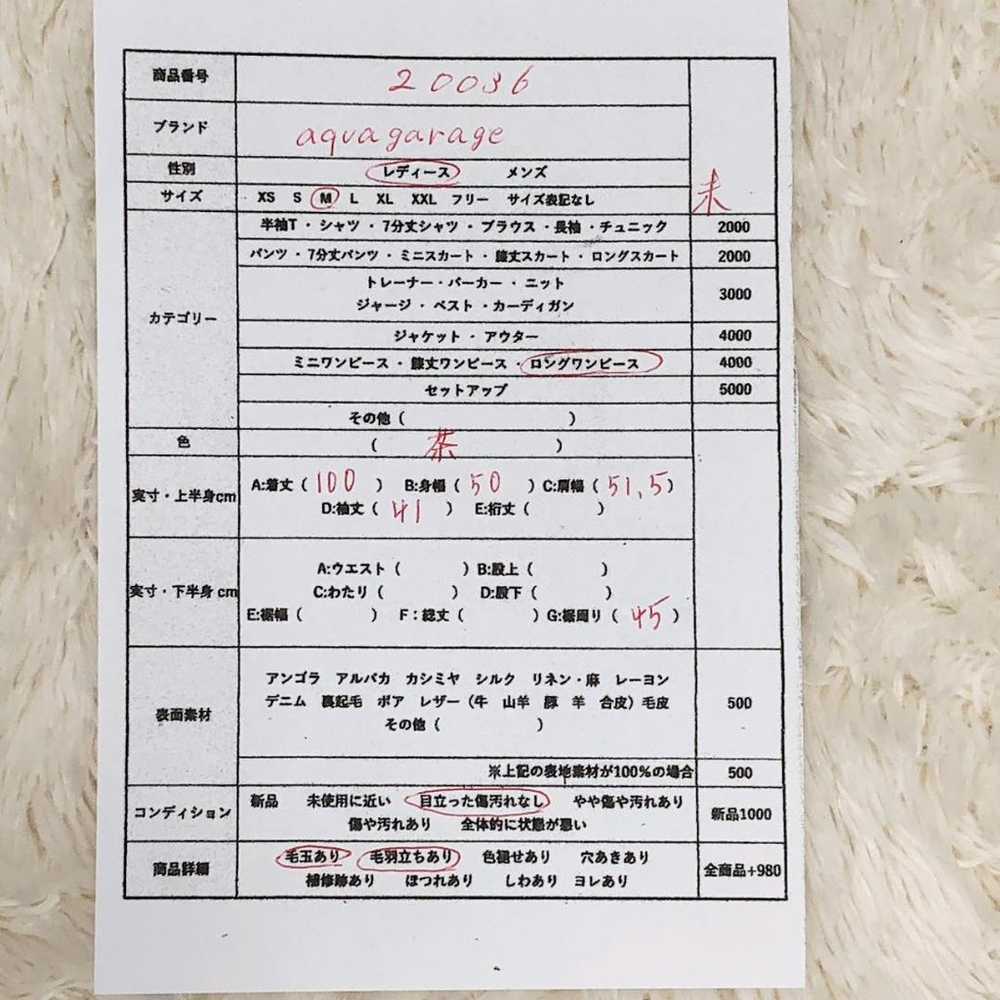 商品番号 20036
ブランド aquagarage
性別 レディース メンズ
サイズ XS S M L XL XXL フリー サイズ表記なし
未
半袖T・シャツ・7分丈シャツ・ブラウス・長袖・チュニック 2000
パンツ・7分丈パンツ・ミニスカート・膝丈スカート・ロングスカート 2000
トレーナー・パーカー・ニット
ジャージ・ベスト・カーディガン 3000
カテゴリー
ジャケット・アウター 4000
ミニワンピース・膝丈ワンピース・ロングワンピース 4000
セットアップ 5000
その他（ ）
色 （ 茶 ）
実寸・上半身cm
A:着丈（100） B:身幅（50）C:肩幅（51.5）
D:袖丈（41） E:裄丈（ ）
実寸・下半身cm
A:ウエスト（ ）B:股上（ ）
C:わたり（ ） D:股下（ ）
E:裾幅（ ） F：総丈（ ）G:裾周り（45）
表面素材
アンゴラ アルパカ カシミヤ シルク リネン・麻 レーヨン
デニム 裏起毛 ボア レザー（牛 山羊 豚 羊 合皮）毛皮 500
その他（ ）
※上記の表地素材が100%の場合 500
コンディション
新品 未使用に近い 目立った傷汚れなし やや傷や汚れあり
傷や汚れあり 全体的に状態が悪い
新品1000
商品詳細
毛玉あり 毛羽立ちあり 色褪せあり 穴あきあり
補修跡あり ほつれあり しわあり ヨレあり
全商品+980